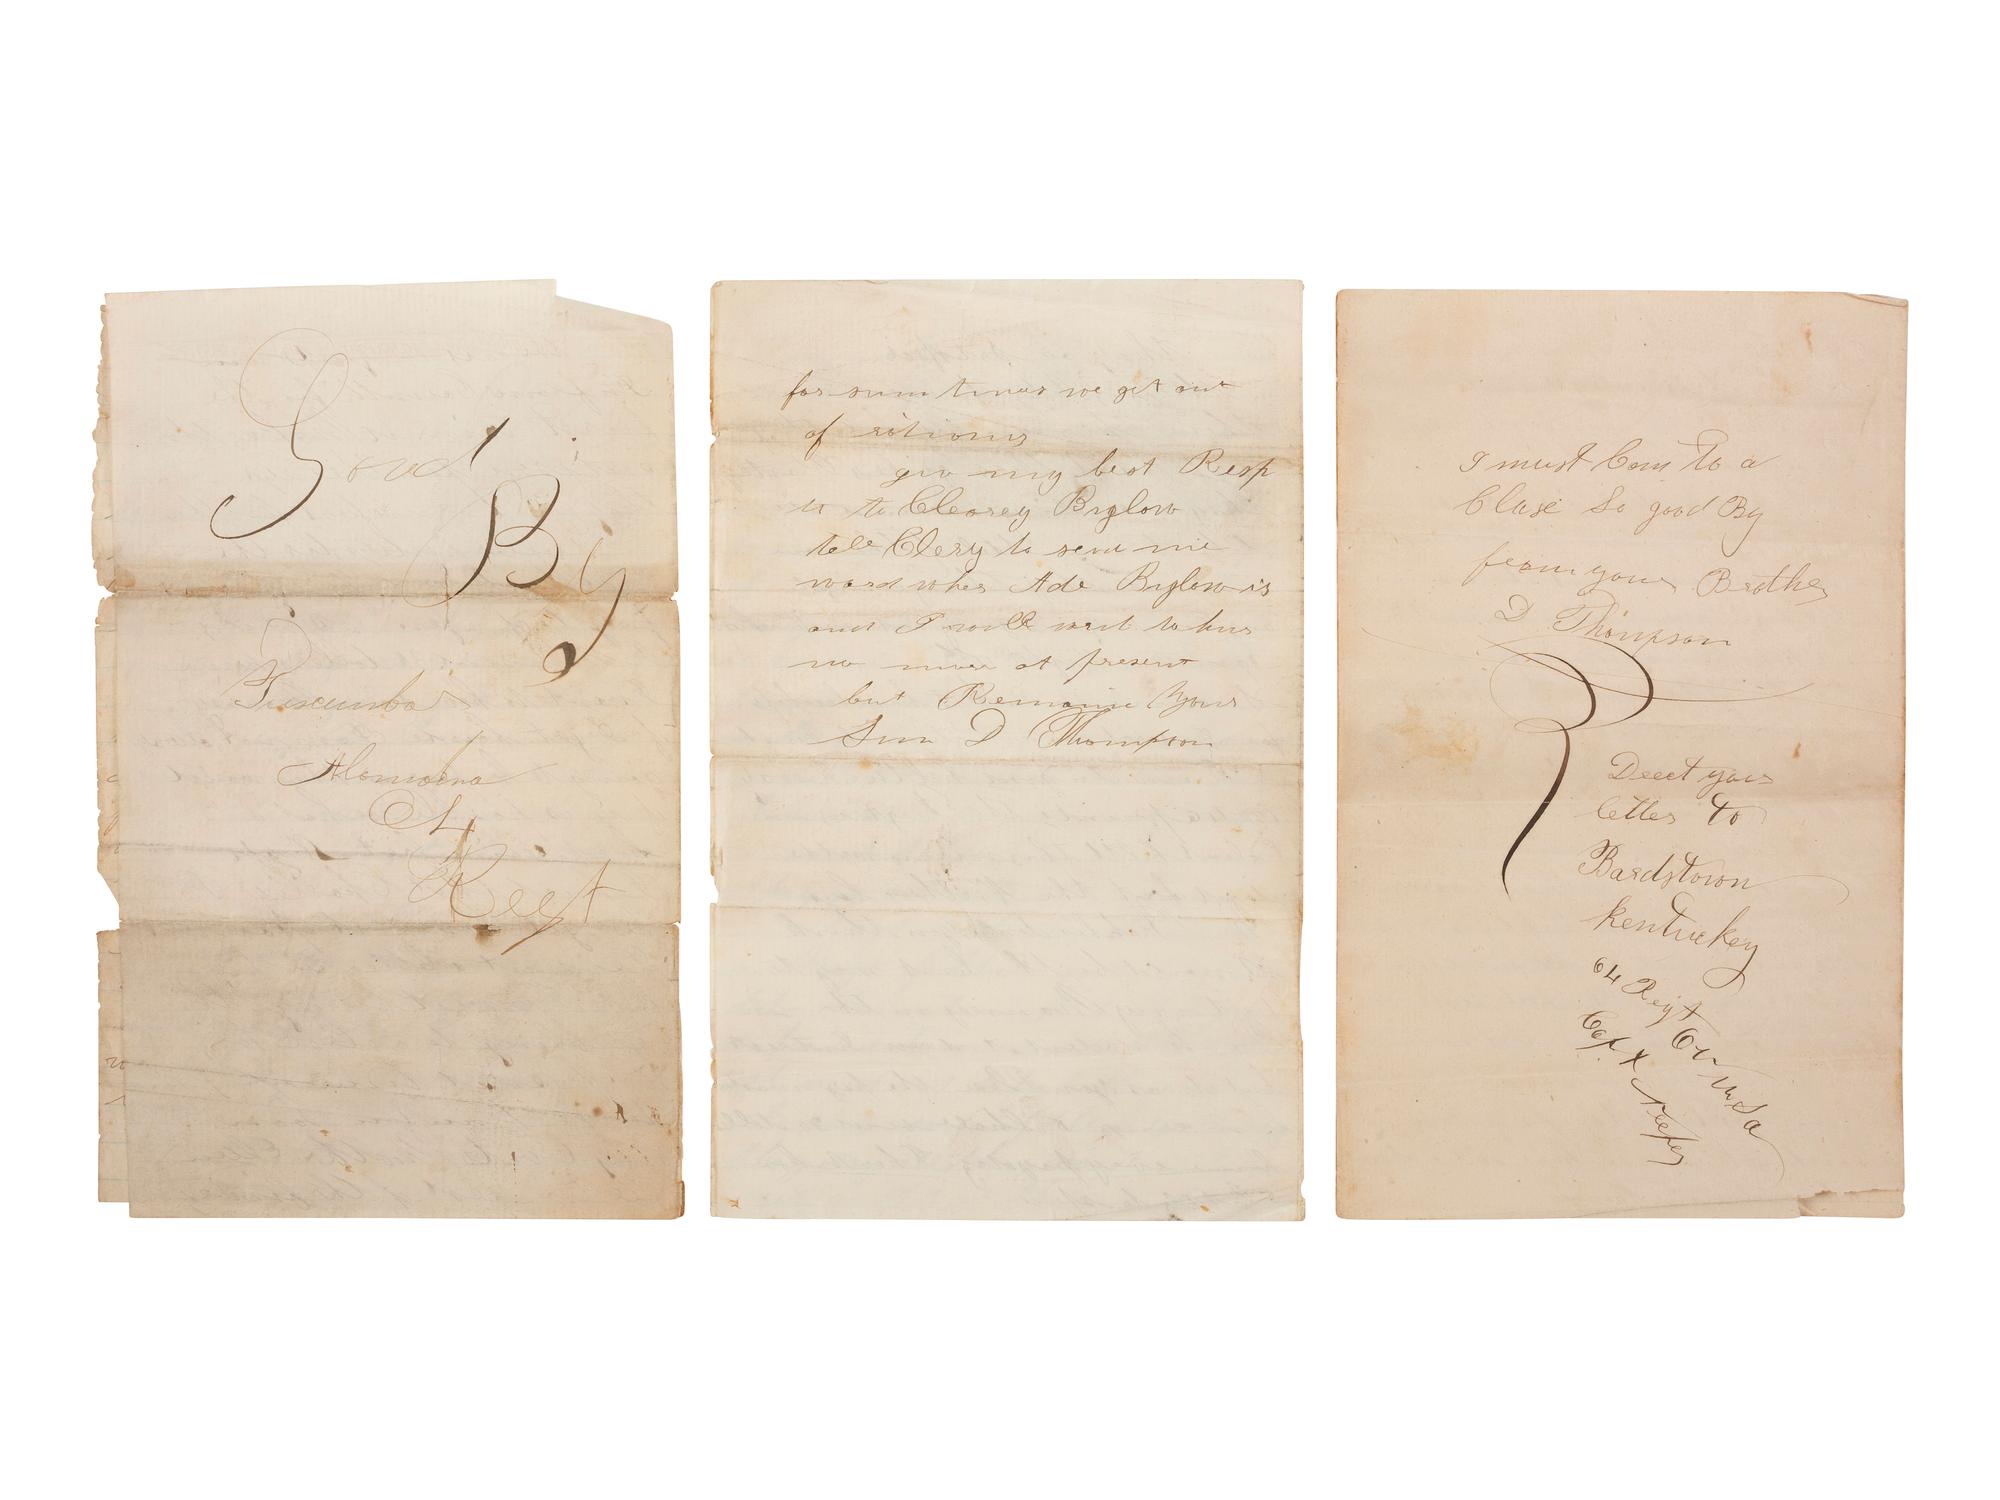 Good
By
Tuscumba
Alambama
for sum times we get out
of rations
giv my best Resp
to Clearey Biglow
tell Clery to send me
word wher Ade Biglow is
and I will writ to him
no more at present
but Remain Your
Sun D Thompson
I must Com To a
Close So good By
from your Brother
D Thompson
Derect your
letter to
Bardstown
Kentuckey
64 Regt